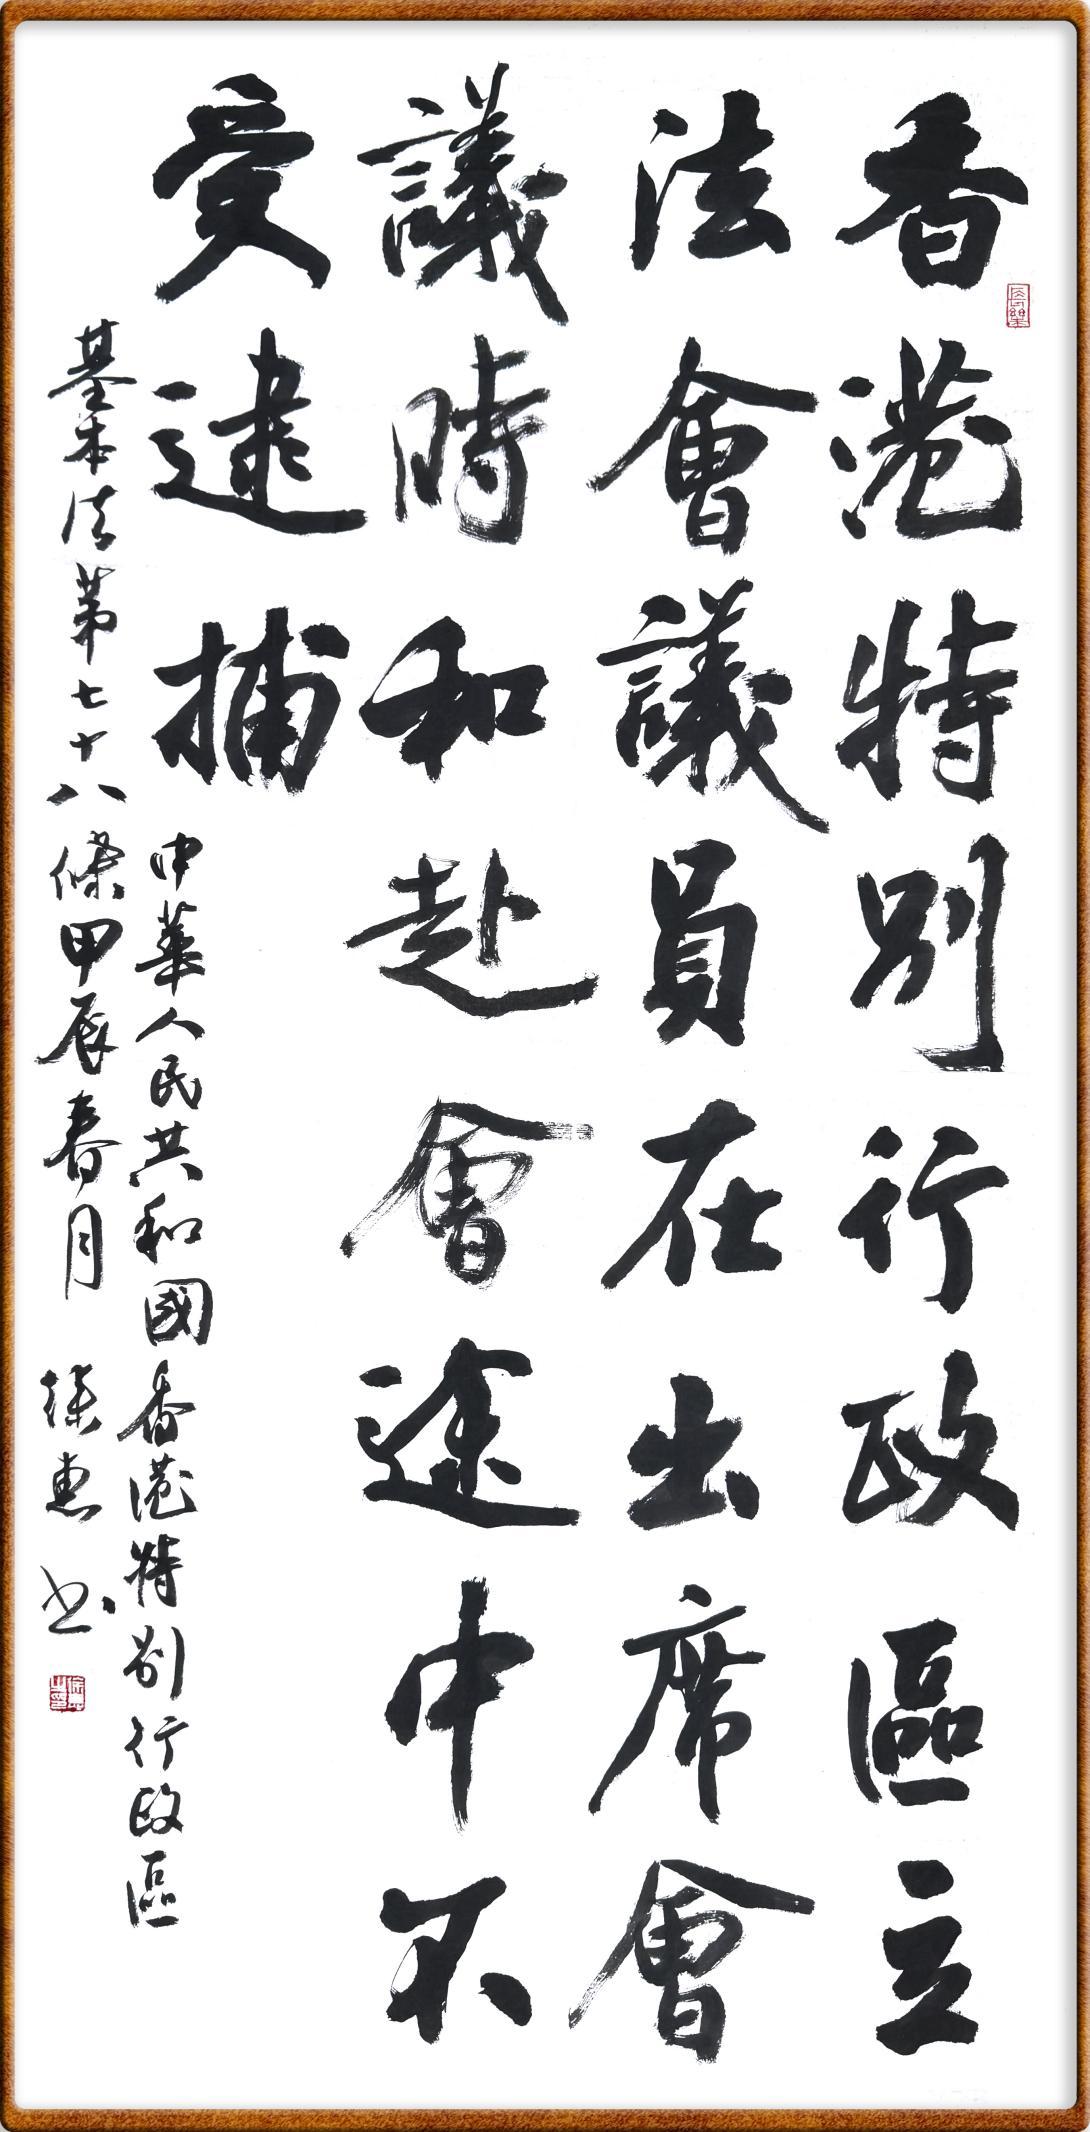 香港特別行政區立
法會議員在出席會
議時和赴會途中不
受逮捕
中華人民共和國香港特別行政區
基本法第七十八條甲辰春月 惠书